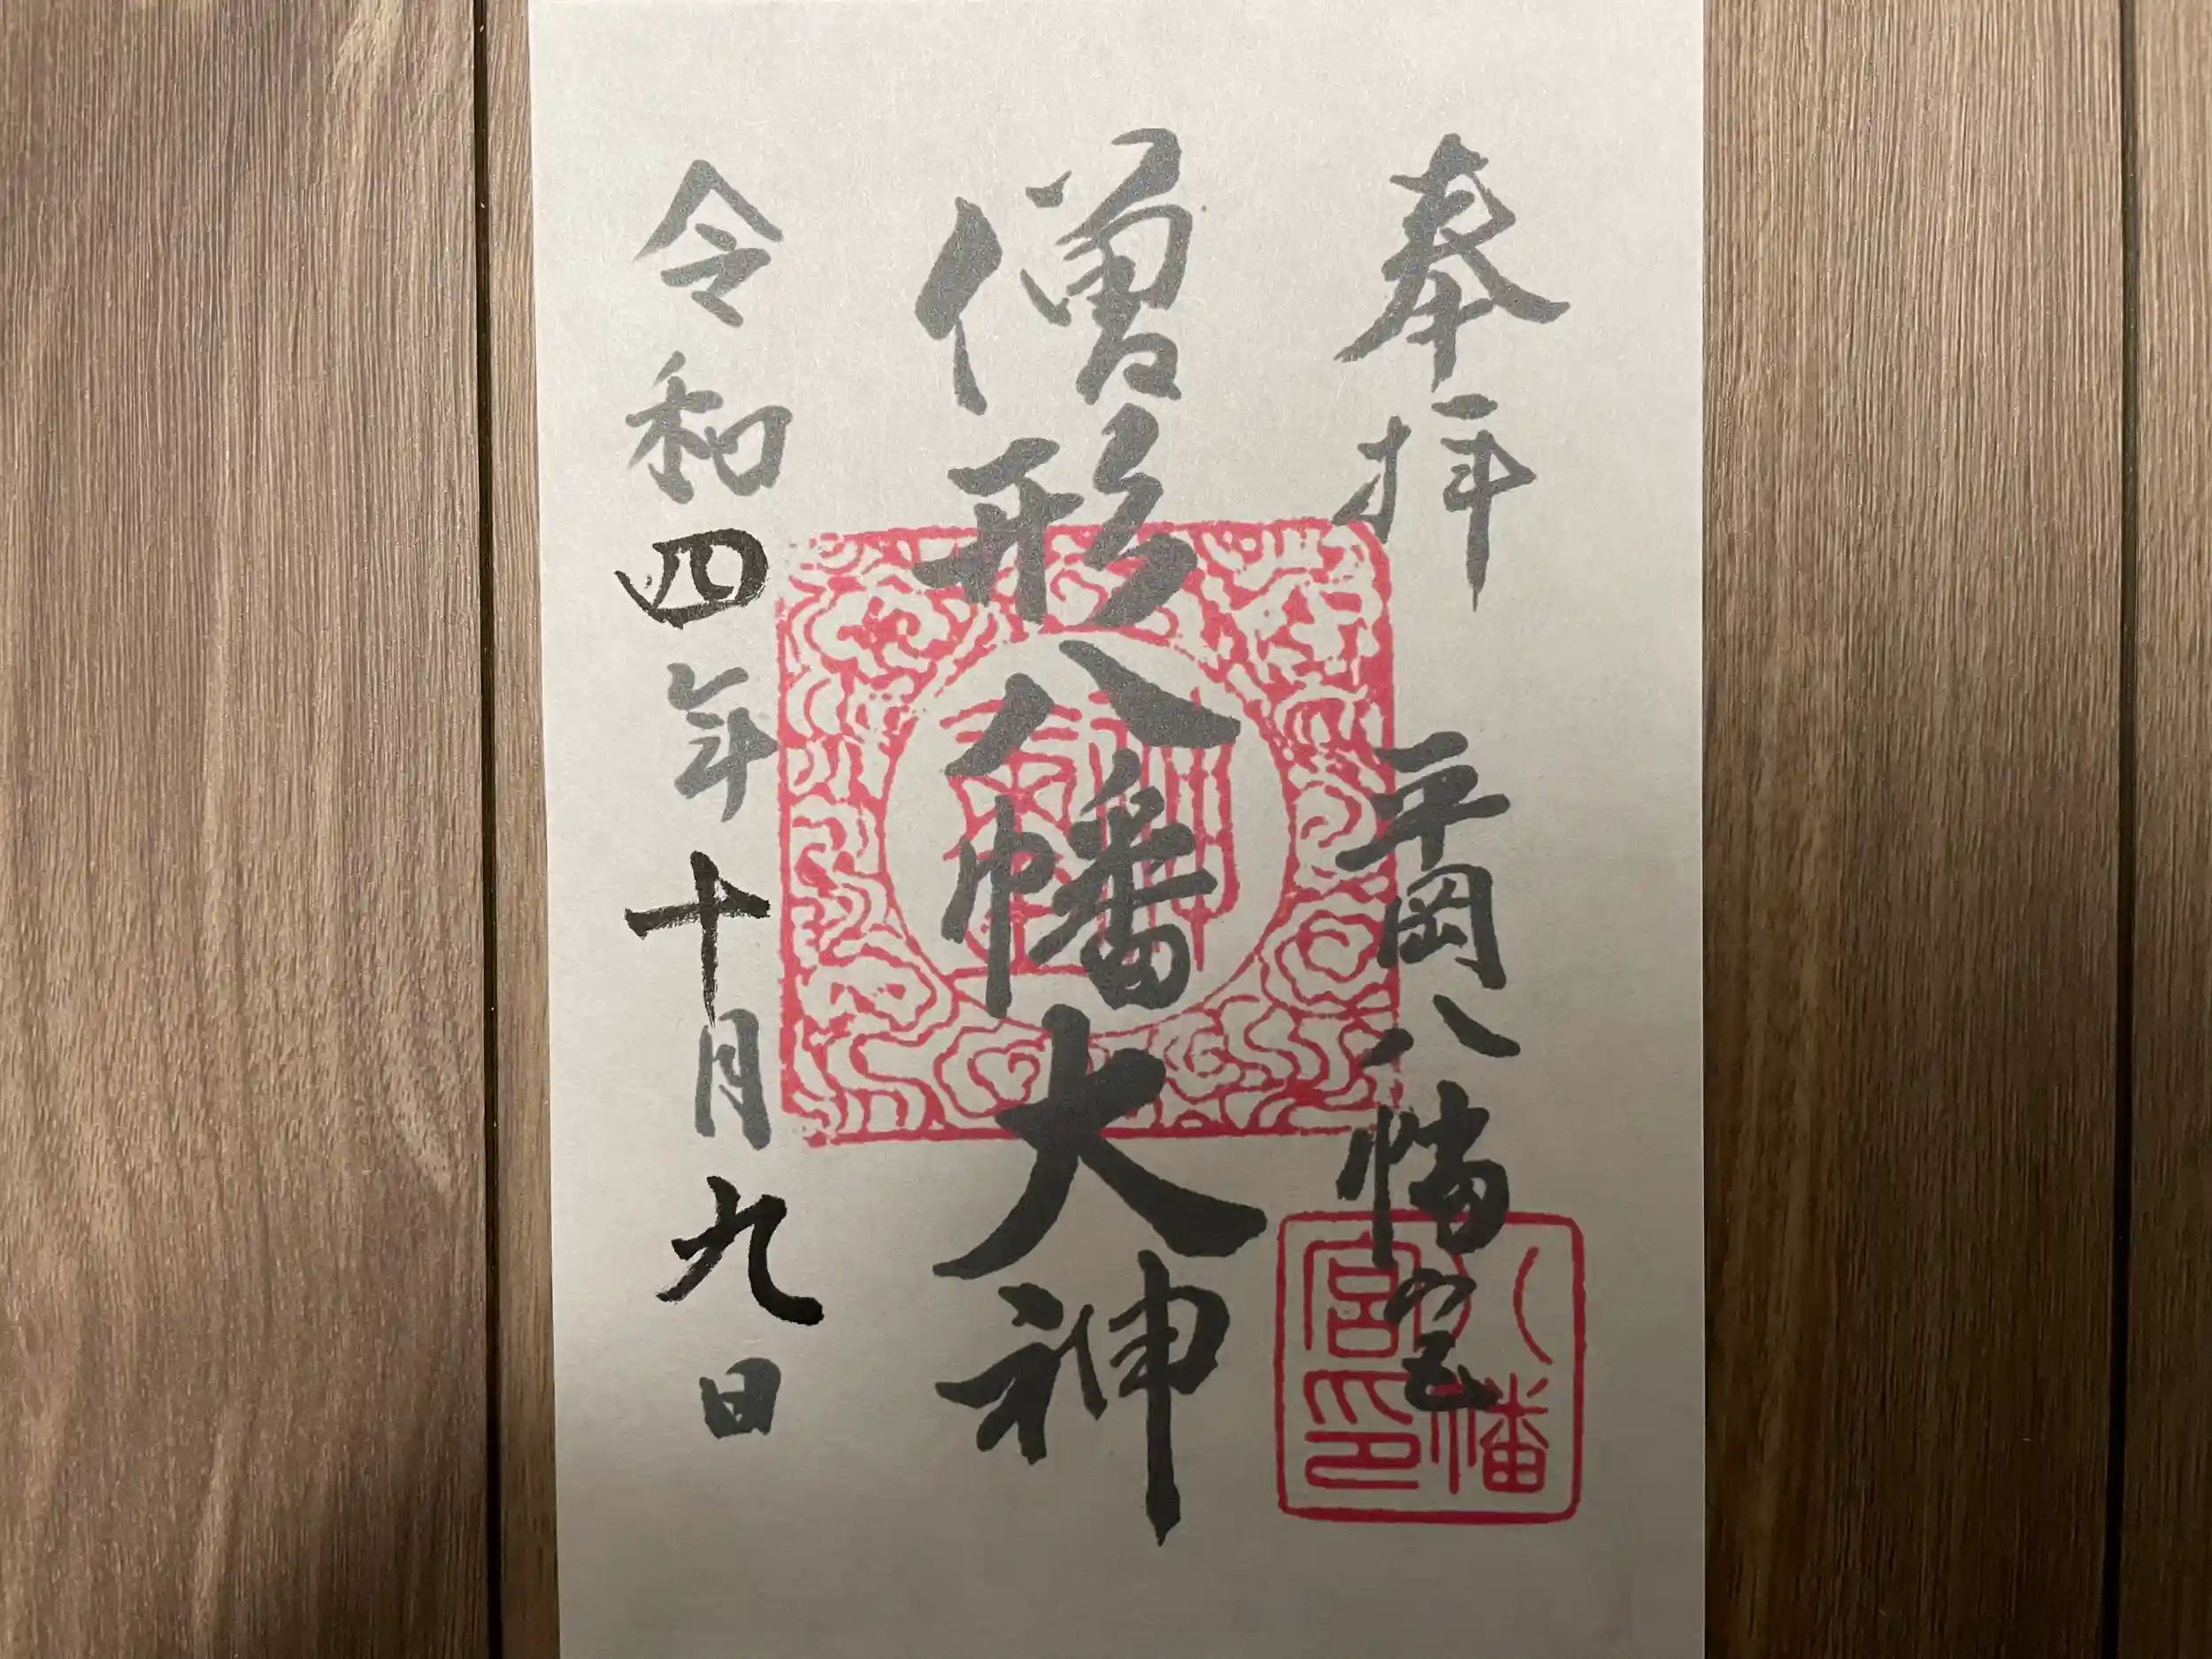 奉拝 平岡八幡宮
僧形八幡大神
令和四年十月九日
八幡
宮印